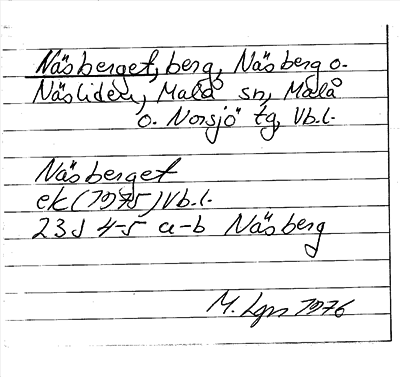 Näsberget, berg, Näsberg o.
Näsliden, Malå sn, Malå
o. Norsjö tg, Vb.l.
Näsberget
ek (1975) Vb.l.
23J 4-5 a-b Näsberg
M. Lgn 1976